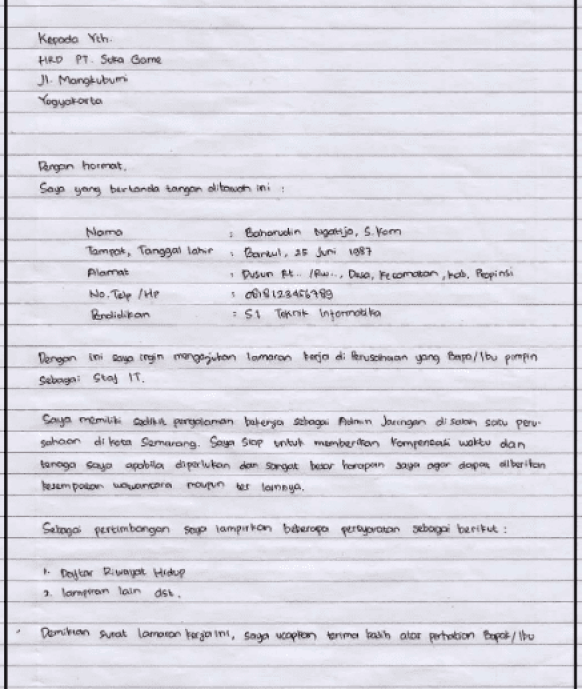 Kepada Yth.
HRD PT. Suka Game
Jl. Mangkubumi
Yogyakarta
Dengan hormat,
Saya yang bertanda tangan dibawah ini :
Nama : Baharudin Ngatijo, S.Kom
Tempat, Tanggal lahir : Bantul, 25 Juni 1987
Alamat : Dusun Rt.. /Rw.., Desa, Kecamatan, Kab, Propinsi
No. Telp /Hp : 0818123456789
Pendidikan : S1 Teknik Informatika
Dengan ini saya ingin mengajukan lamaran kerja di Perusahaan yang Bapa/Ibu pimpin
Sebagai Staf IT.
Saya memiliki sedikit pengalaman bekerja sebagai Admin Jaringan di salah satu peru-
sahaan di kota Semarang. Saya siap untuk memberikan kompensasi waktu dan
tenaga saya apabila diperlukan dan sangat besar harapan saya agar dapat diberikan
kesempatan wawancara maupun tes lainnya.
Sebagai pertimbangan saya lampirkan beberapa persyaratan sebagai berikut :
1. Daftar Riwayat Hidup
2. lampiran lain dst.
Demikian surat lamaran kerja ini, saya ucapkan terima kasih atas perhatian Bapak/Ibu